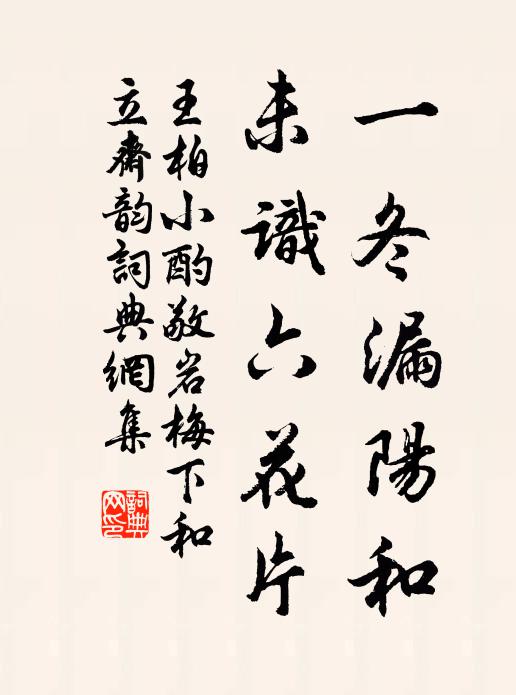 一冬漏陽和
未識六花片
王柏小酌敬岩梅下和
立齋韵詞典網集
詞典网印